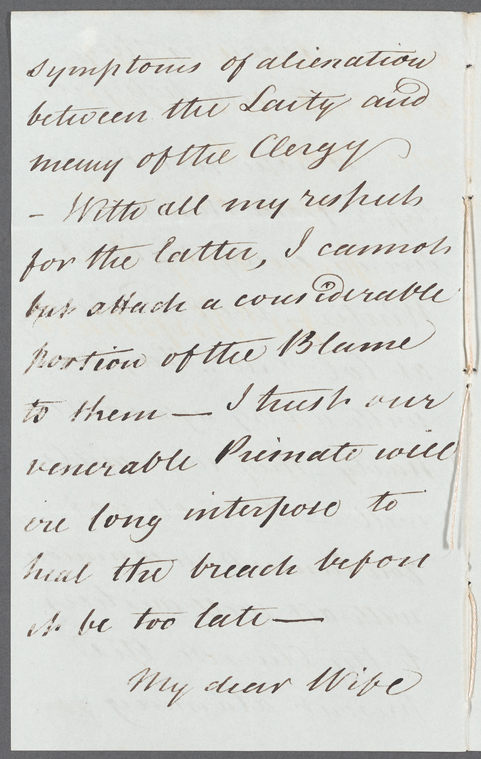 symptoms of alienation
between the Laity and
many of the Clergy
- With all my respect
for the latter, I cannot
but attach a considerable
portion of the Blame
to them — I trust our
venerable Primate will
ere long interpose to
heal the breach before
it be too late —
My dear Wife